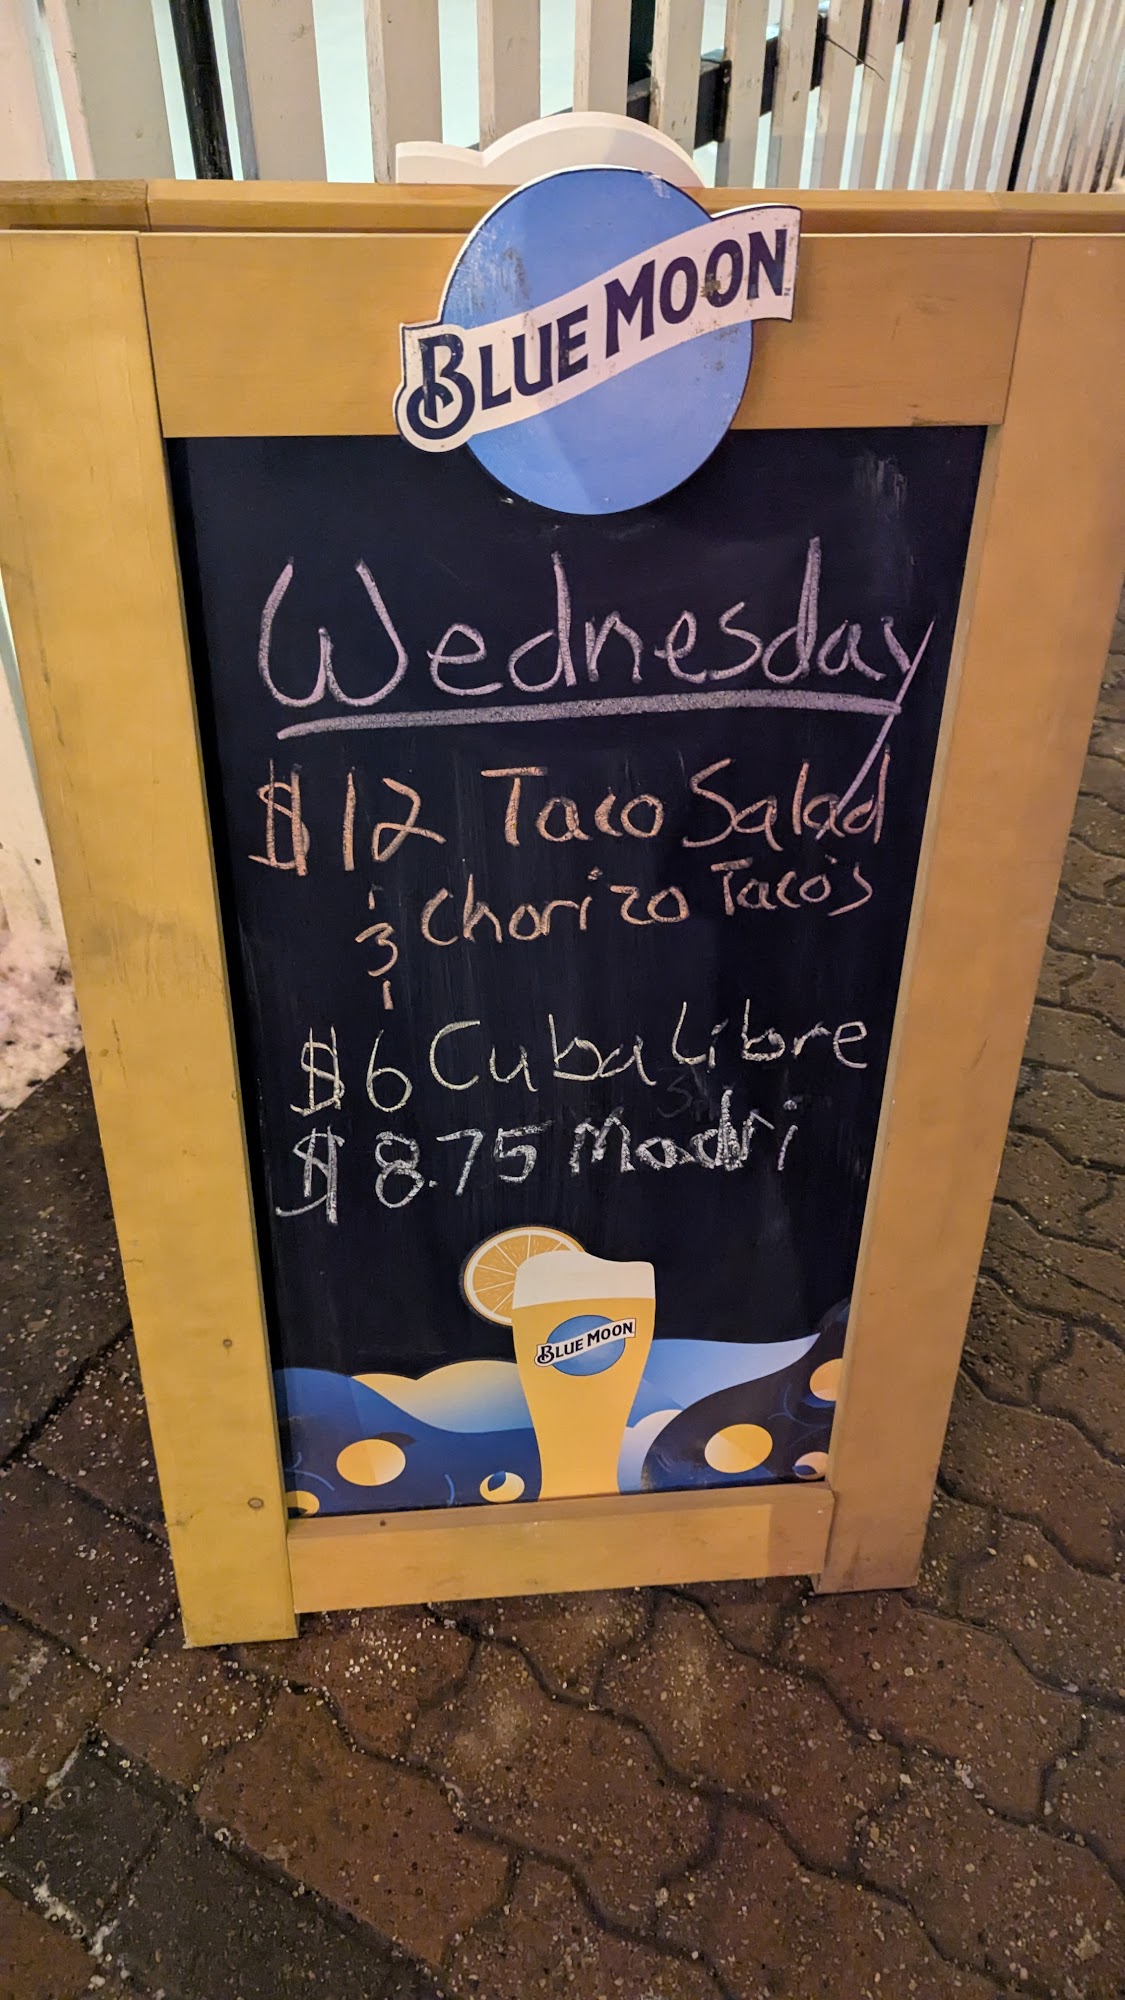 BLUE MOON
Wednesday
$12 Taco Salad
& Chorizo Taco's
$6 Cuba Libre
$8.75 Madri
BLUE MOON